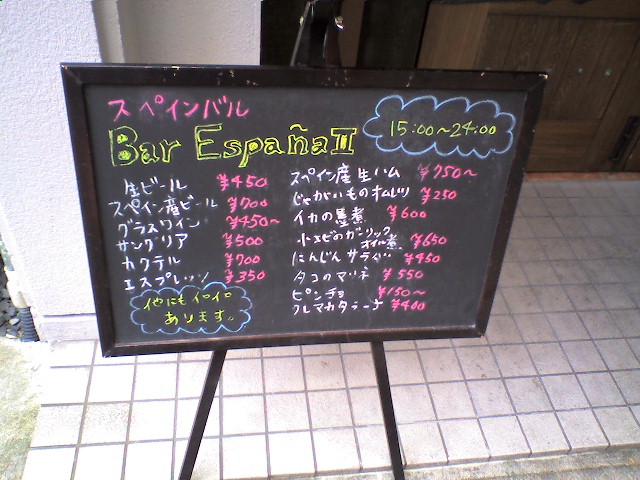 スペインバル
Bar España II
15:00~24:00
生ビール ¥450
スペイン産ビール ¥700
グラスワイン ¥450~
サングリア ¥500
カクテル ¥700
エスプレッソ ¥350
他にもイロイロ
あります。
スペイン産生ハム ¥750~
じゃがいものオムレツ ¥250
イカの墨煮 ¥600
小エビのガーリック
オイル煮 ¥650
にんじんサラダ ¥450
タコのマリネ ¥550
ピンチョ ¥150~
クレマカタラーナ ¥400